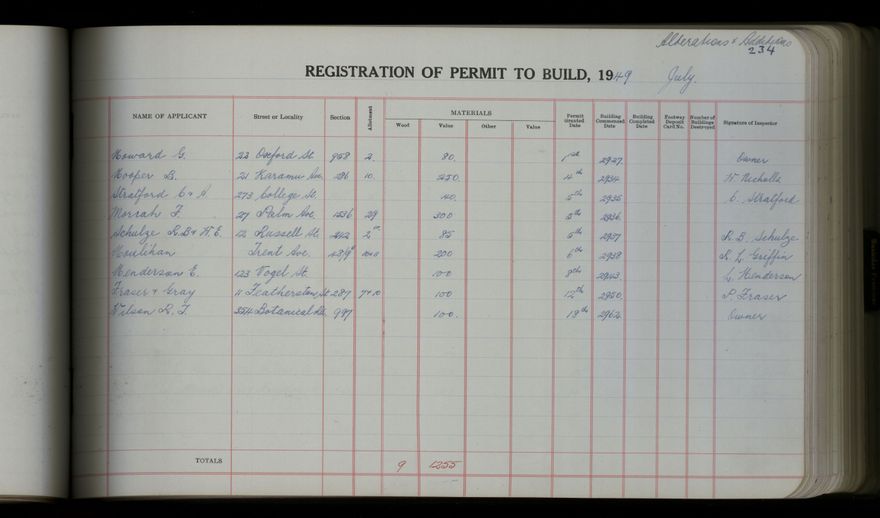 Alterations & Additions
234
REGISTRATION OF PERMIT TO BUILD, 1949 July.
NAME OF APPLICANT Street or Locality Section Allotment MATERIALS Permit Granted Date Building Commenced Date Building Completed Date Footway Deposit Card No. Number of Buildings Destroyed Signature of Inspector
Wood Value Other Value
Howard G. 22 Oxford St 958 2. 80. 1st 2927. Owner
Hooper B. 21 Karamu Ave 10. 4th 2934 W. Nicholls
Stratford C & A 273 College St. 140. 5th 2935 C. Stratford
Morrah F. 27 Palm Ave. 1536 29 300 5th 2936
Schulze R.B & H.E. 12 Russell St. 242 85 5th 2937 R.B. Schulze
Houlihan Trent Ave. 200 6th 2938 R.L. Griffin
Henderson E. 123 Vogel St. 100 8th 2943 L. Henderson
Fraser & Gray 11 Featherston St 287 9 & 10 100 12th 2950. P. Fraser
Wilson R. T. Botanical Rd. 987 100. 18th 2962 Owner
TOTALS 9 1255